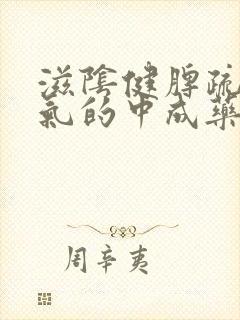 滋陰健脾疏
氣的中成藥
周辛夷